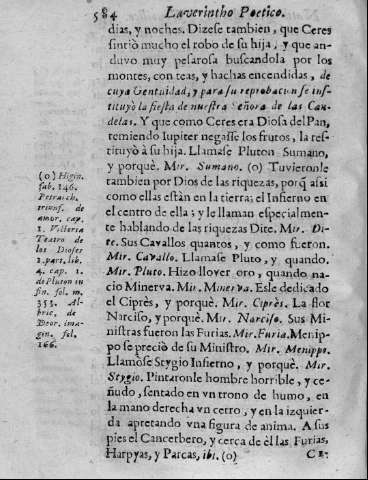 584 Laverintho Poetico.
dias, y noches. Dizese tambien, que Ceres
sintiò mucho el robo de su hija, y que an-
duvo muy pesarosa buscandola por los
montes, con teas, y hachas encendidas, de
cuya Gentuidad, y para su reprobacun se ins-
tituyò la fiesta de nuestra Señora de las Can-
delas. Y que como Ceres era Diosa del Pan,
temiendo Iupiter negasse los frutos, la res-
tituyò à su hija. Llamese Pluton Sumano,
y porquè. Mir. Sumano. (o) Tuvieronle
tambien por Dios de las riquezas, porq̃ assi
como ellas estàn en la tierra; el Infierno en
el centro de ella; y le llaman especialmen-
te hablando de las riquezas Dite. Mir. Di-
te. Sus Cavallos quantos, y como fueron.
Mir. Cavallo. Llamase Pluto, y quando.
Mir. Pluto. Hizo llover oro, quando na-
cio Minerva. Mir. Minerva. Esle dedicado
el Ciprès, y porquè. Mir. Ciprès. La flor
Narciso, y porquè. Mir. Narciso. Sus Mi-
nistras fueron las Furias. Mir. Furia. Menip-
po se preciò de su Ministro. Mir. Menippo.
Llamòse Stygio Infierno, y porquè. Mir.
Stygio. Pintaronle hombre horrible, y ce-
ñudo, sentado en vn trono de humo, en
la mano derecha vn cetro, y en la izquier-
da apretando vna figura de anima. A sus
pies el Cancerbero, y cerca de èl las Furias,
Harpyas, y Parcas, ibi. (o)
CE-
(o) Higin.
fab. 146.
Petrarch.
triunf. de
amor. cap.
1. Vitoria
Teatro de
los Dioses
2. part. lib.
4. cap. 1.
de Pluton in
fin. fol. m.
353. Al-
bric. de
Deor. ima-
gin. fol.
166.